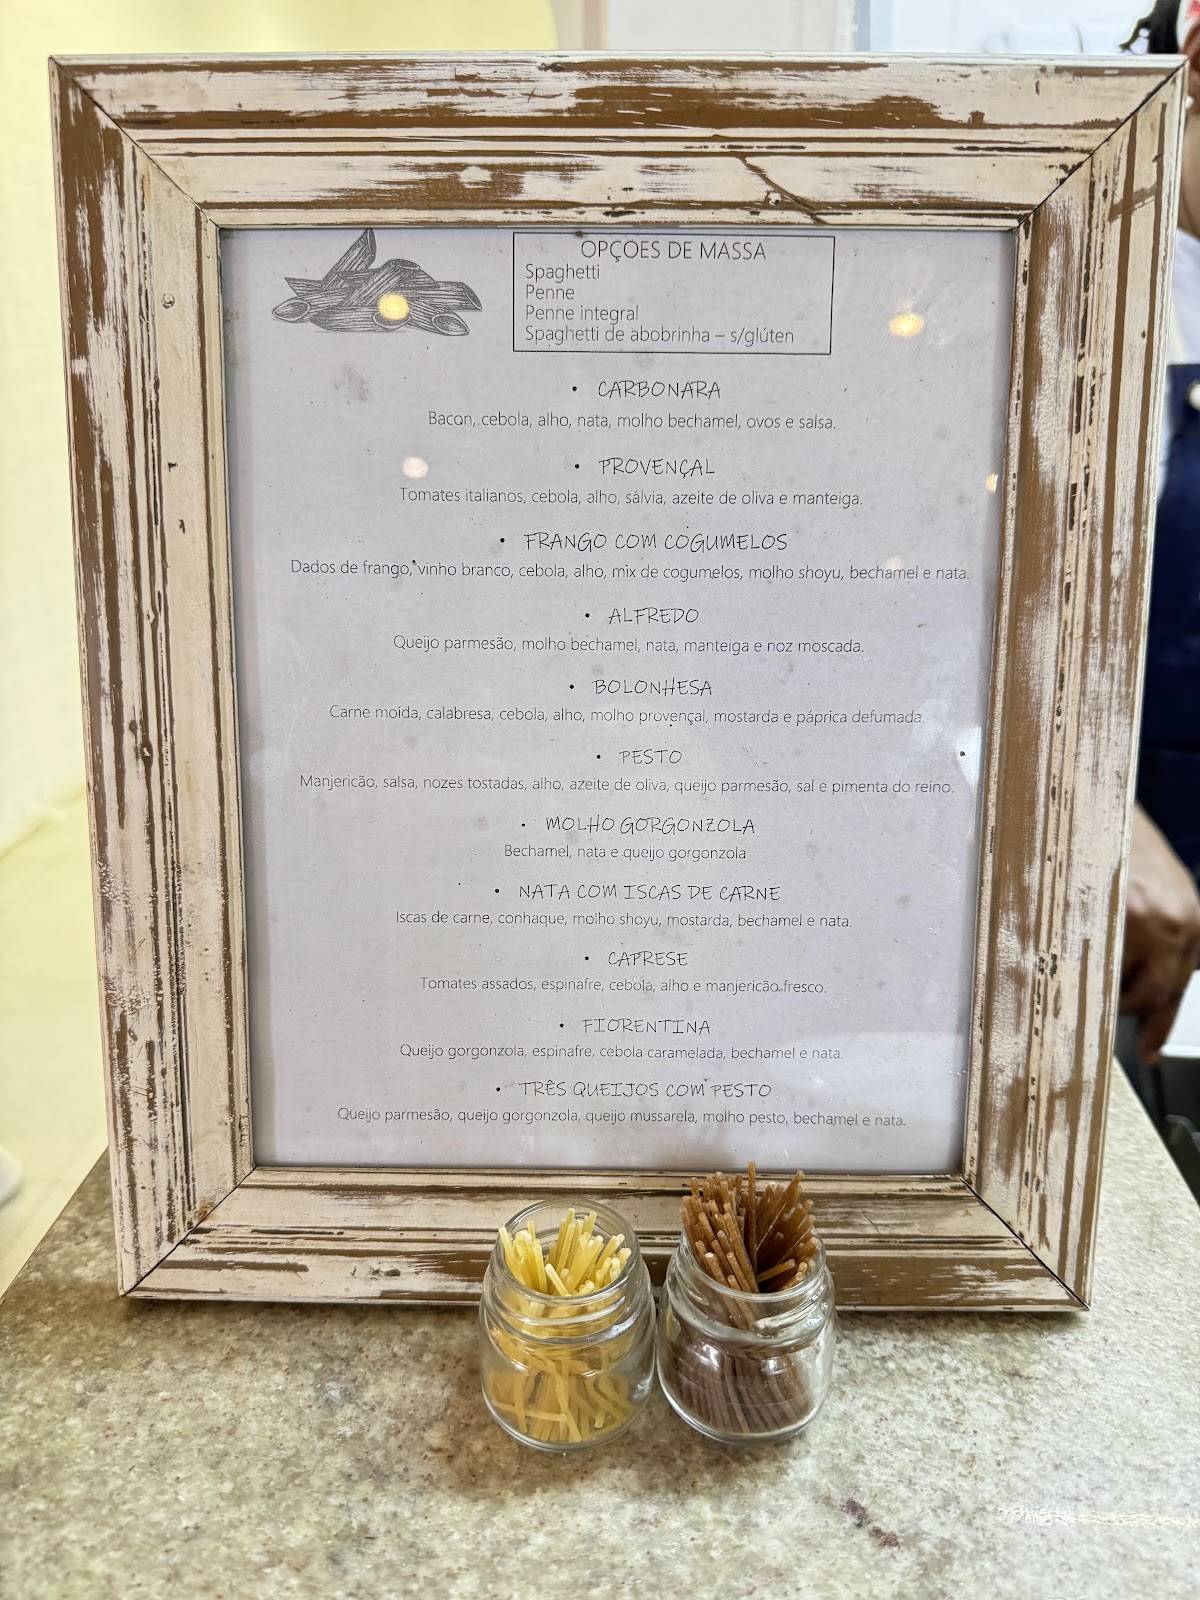 OPÇOES DE MASSA
Spaghetti
Penne
Penne integral
Spaghetti de abobrinha – s/glúten
• CARBONARA
Bacon, cebola, alho, nata, molho bechamel, ovos e salsa.
• PROVENÇAL
Tomates italianos, cebola, alho, sálvia, azeite de oliva e manteiga.
• FRANGO COM COGUMELOS
Dados de frango, vinho branco, cebola, alho, mix de cogumelos, molho shoyu, bechamel e nata.
• ALFREDO
Queijo parmesão, molho bechamel, nata, manteiga e noz moscada.
• BOLONHESA
Carne moída, calabresa, cebola, alho, molho provençal, mostarda e páprica defumada.
• PESTO
Manjericão, salsa, nozes tostadas, alho, azeite de oliva, queijo parmesão, sal e pimenta do reino.
• MOLHO GORGONZOLA
Bechamel, nata e queijo gorgonzola
• NATA COM ISCAS DE CARNE
Iscas de carne, conhaque, molho shoyu, mostarda, bechamel e nata.
• CAPRESE
Tomates assados, espinafre, cebola, alho e manjericão fresco.
• FIORENTINA
Queijo gorgonzola, espinafre, cebola caramelada, bechamel e nata.
• TRÊS QUEIJOS COM PESTO
Queijo parmesão, queijo gorgonzola, queijo mussarela, molho pesto, bechamel e nata.